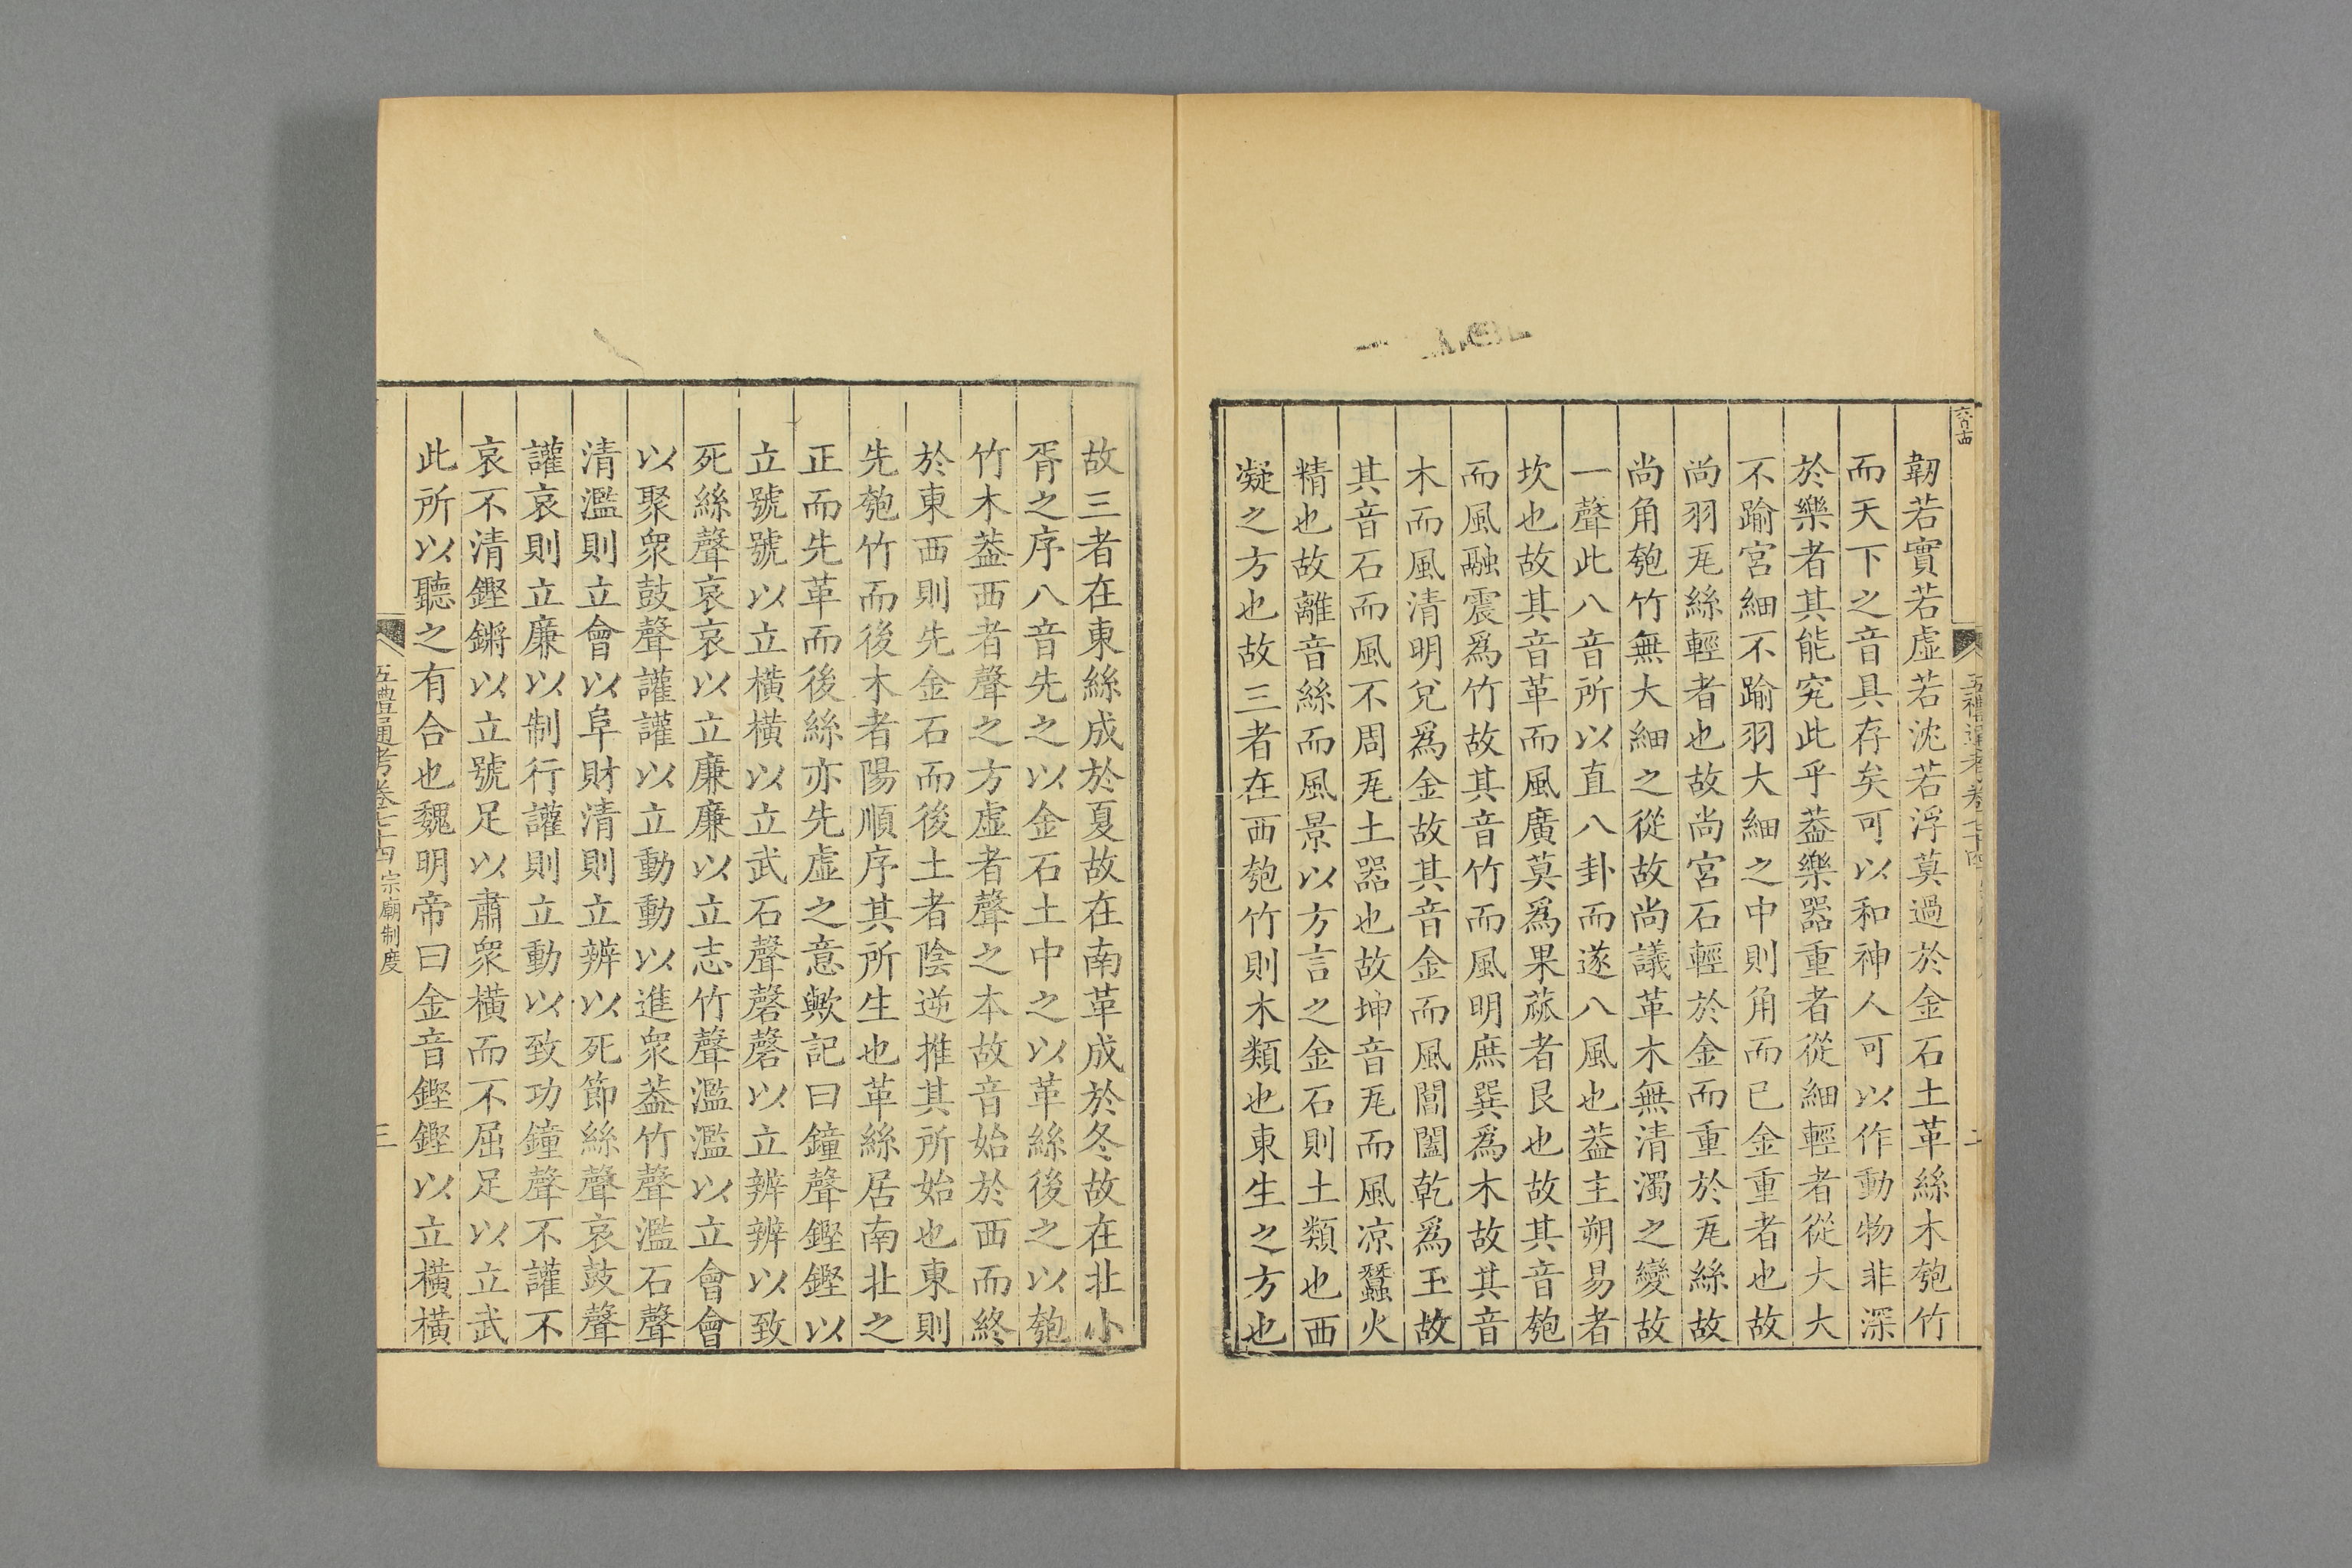 韌若實若虛若沈若浮莫過於金石土革絲木匏竹
而天下之音具存矣可以和神人可以作動物非深
於樂者其能究此乎葢樂器重者從細輕者從大大
不踰宮細不踰羽大細之中則角而已金重者也故
尚羽瓦絲輕者也故尚宮石輕於金而重於瓦絲故
尚角匏竹無大細之從故尚議革木無清濁之變故
一聲此八音所以直八卦而遂八風也葢主朔易者
坎也故其音革而風廣莫爲果蓏者艮也故其音匏
而風融震爲竹故其音竹而風明庶巽爲木故其音
木而風清明兌爲金故其音金而風閶闔乾爲玉故
其音石而風不周瓦土器也故坤音瓦而風凉蠶火
精也故離音絲而風景以方言之金石則土類也西
凝之方也故三者在西匏竹則木類也東生之方也
故三者在東絲成於夏故在南革成於冬故在北小
胥之序八音先之以金石土中之以革絲後之以匏
竹木葢西者聲之方虛者聲之本故音始於西而終
於東西則先金石而後土者陰逆推其所始也東則
先匏竹而後木者陽順序其所生也革絲居南北之
正而先革而後絲亦先虛之意歟記曰鐘聲鏗鏗以
立號號以立橫橫以立武石聲磬磬以立辨辨以致
死絲聲哀哀以立廉廉以立志竹聲濫濫以立會會
以聚衆鼓聲讙讙以立動動以進衆葢竹聲濫石聲
清濫則立會以阜財清則立辨以死節絲聲哀鼓聲
讙哀則立廉以制行讙則立動以致功鐘聲不讙不
哀不清鏗鏘以立號足以肅衆橫而不屈足以立武
此所以聽之有合也魏明帝曰金音鏗鏗以立橫橫
五禮通考卷七十四 宗廟制度
三